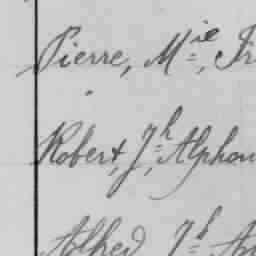 Pierre, M^ie, Fr
Robert, J^h, Alphon
Alfred J^h An